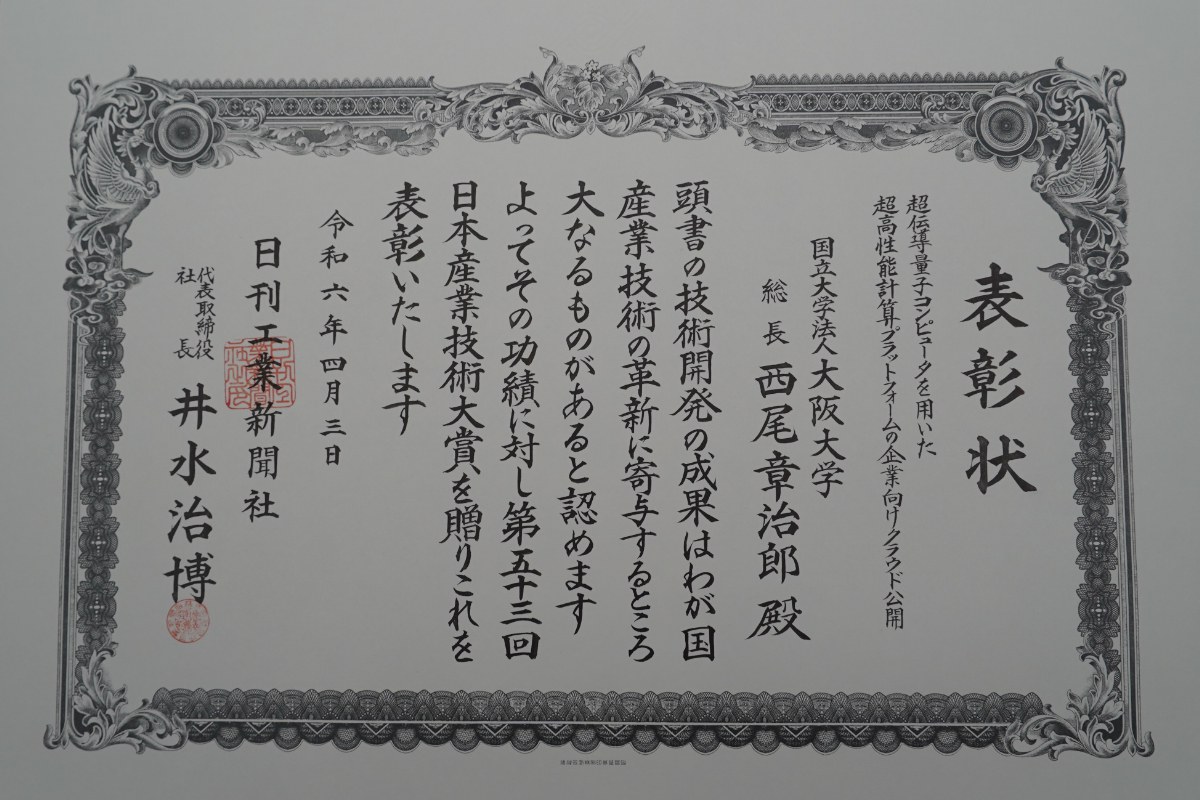 表彰状
超伝導量子コンピュータを用いた
超高性能計算プラットフォームの企業向けクラウド公開
国立大学法人大阪大学
総長 西尾章治郎殿
頭書の技術開発の成果はわが国
産業技術の革新に寄与するところ
大なるものがあると認めます
よってその功績に対し第五十三回
日本産業技術大賞を贈りこれを
表彰いたします
令和六年四月三日
日刊工業新聞社
代表取締役
社長 井水治博